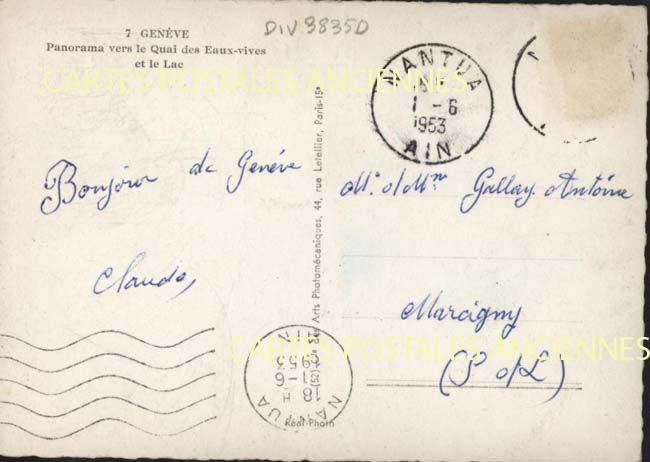 7 GENÈVE
Panorama vers le Quai des Eaux-vives
et le Lac
DIV3835D
CARTES POSTALES ANCIENNES
NANTUA
1 - 6
1953
AIN
Bonjour de Genève
Claude,
Arts Photomécaniques, 44, rue Letellier, Paris-15e
Mr. Mme Gallay Antoine
Marcigny
(S o/L)
CARTES POSTALES ANCIENNES
NANTUA
18 H
1-6
1953
Réal-Photo